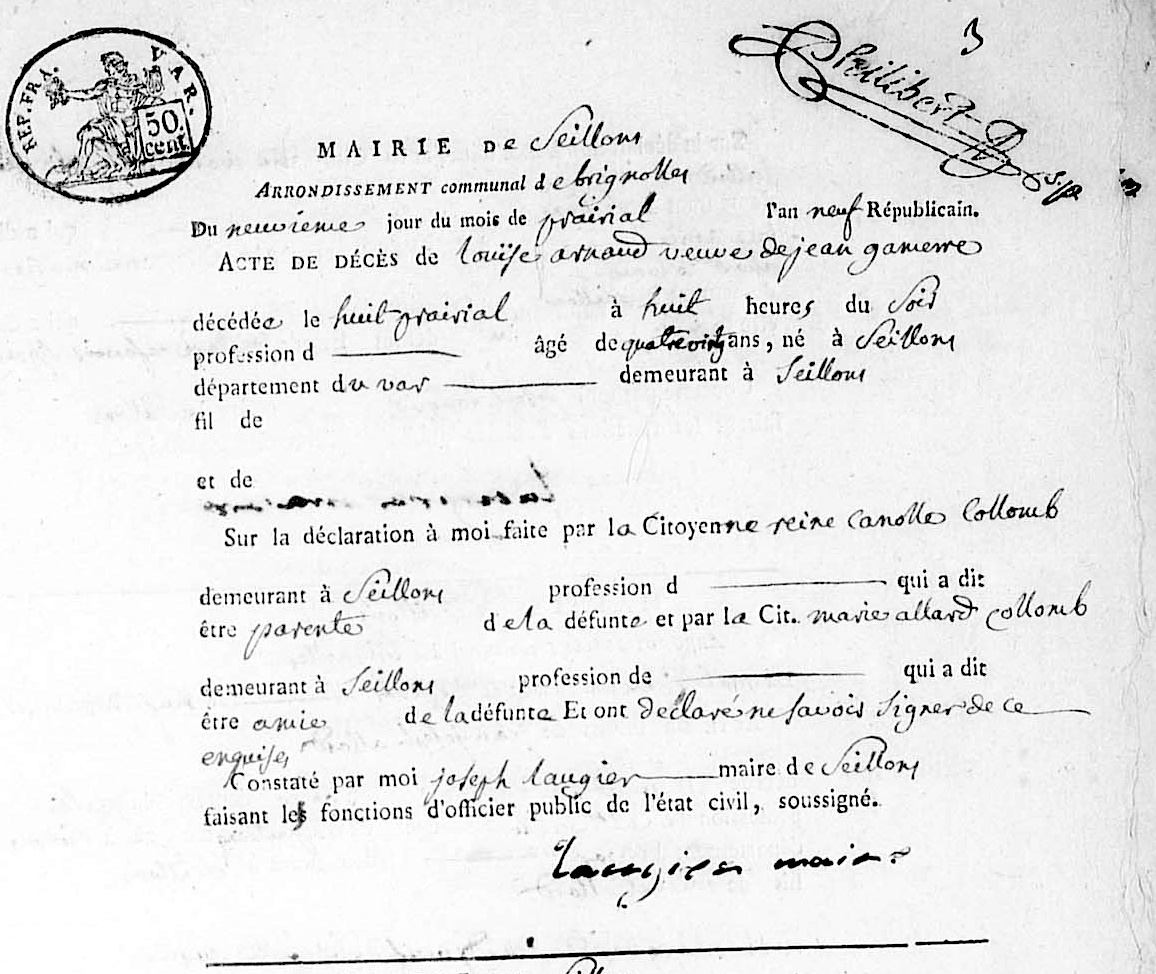 3
REP. FRA. VAR.
50
cent.
Philibert
s. p.
MAIRIE DE Seillons
ARRONDISSEMENT communal de brignolles
Du neuvieme jour du mois de prairial l'an neuf Républicain.
ACTE DE DÉCÈS de louise arnaud veuve de jean
décédée le huit prairial à huit heures du Soir
profession d âgé de quatrevingt ans, né à Seillons
département du var demeurant à Seillons
fil de
et de
Sur la déclaration à moi faite par la Citoyenne reine Canolle Collomb
demeurant à Seillons profession d qui a dit
être parente de la défunte et par la Cit. marie allard Collomb
demeurant à Seillons profession de qui a dit
être amie de la défunte Et ont declaré ne savoir signer de ce
enquises
Constaté par moi joseph laugier maire de Seillons
faisant les fonctions d'officier public de l'état civil, soussigné.
Laugier maire